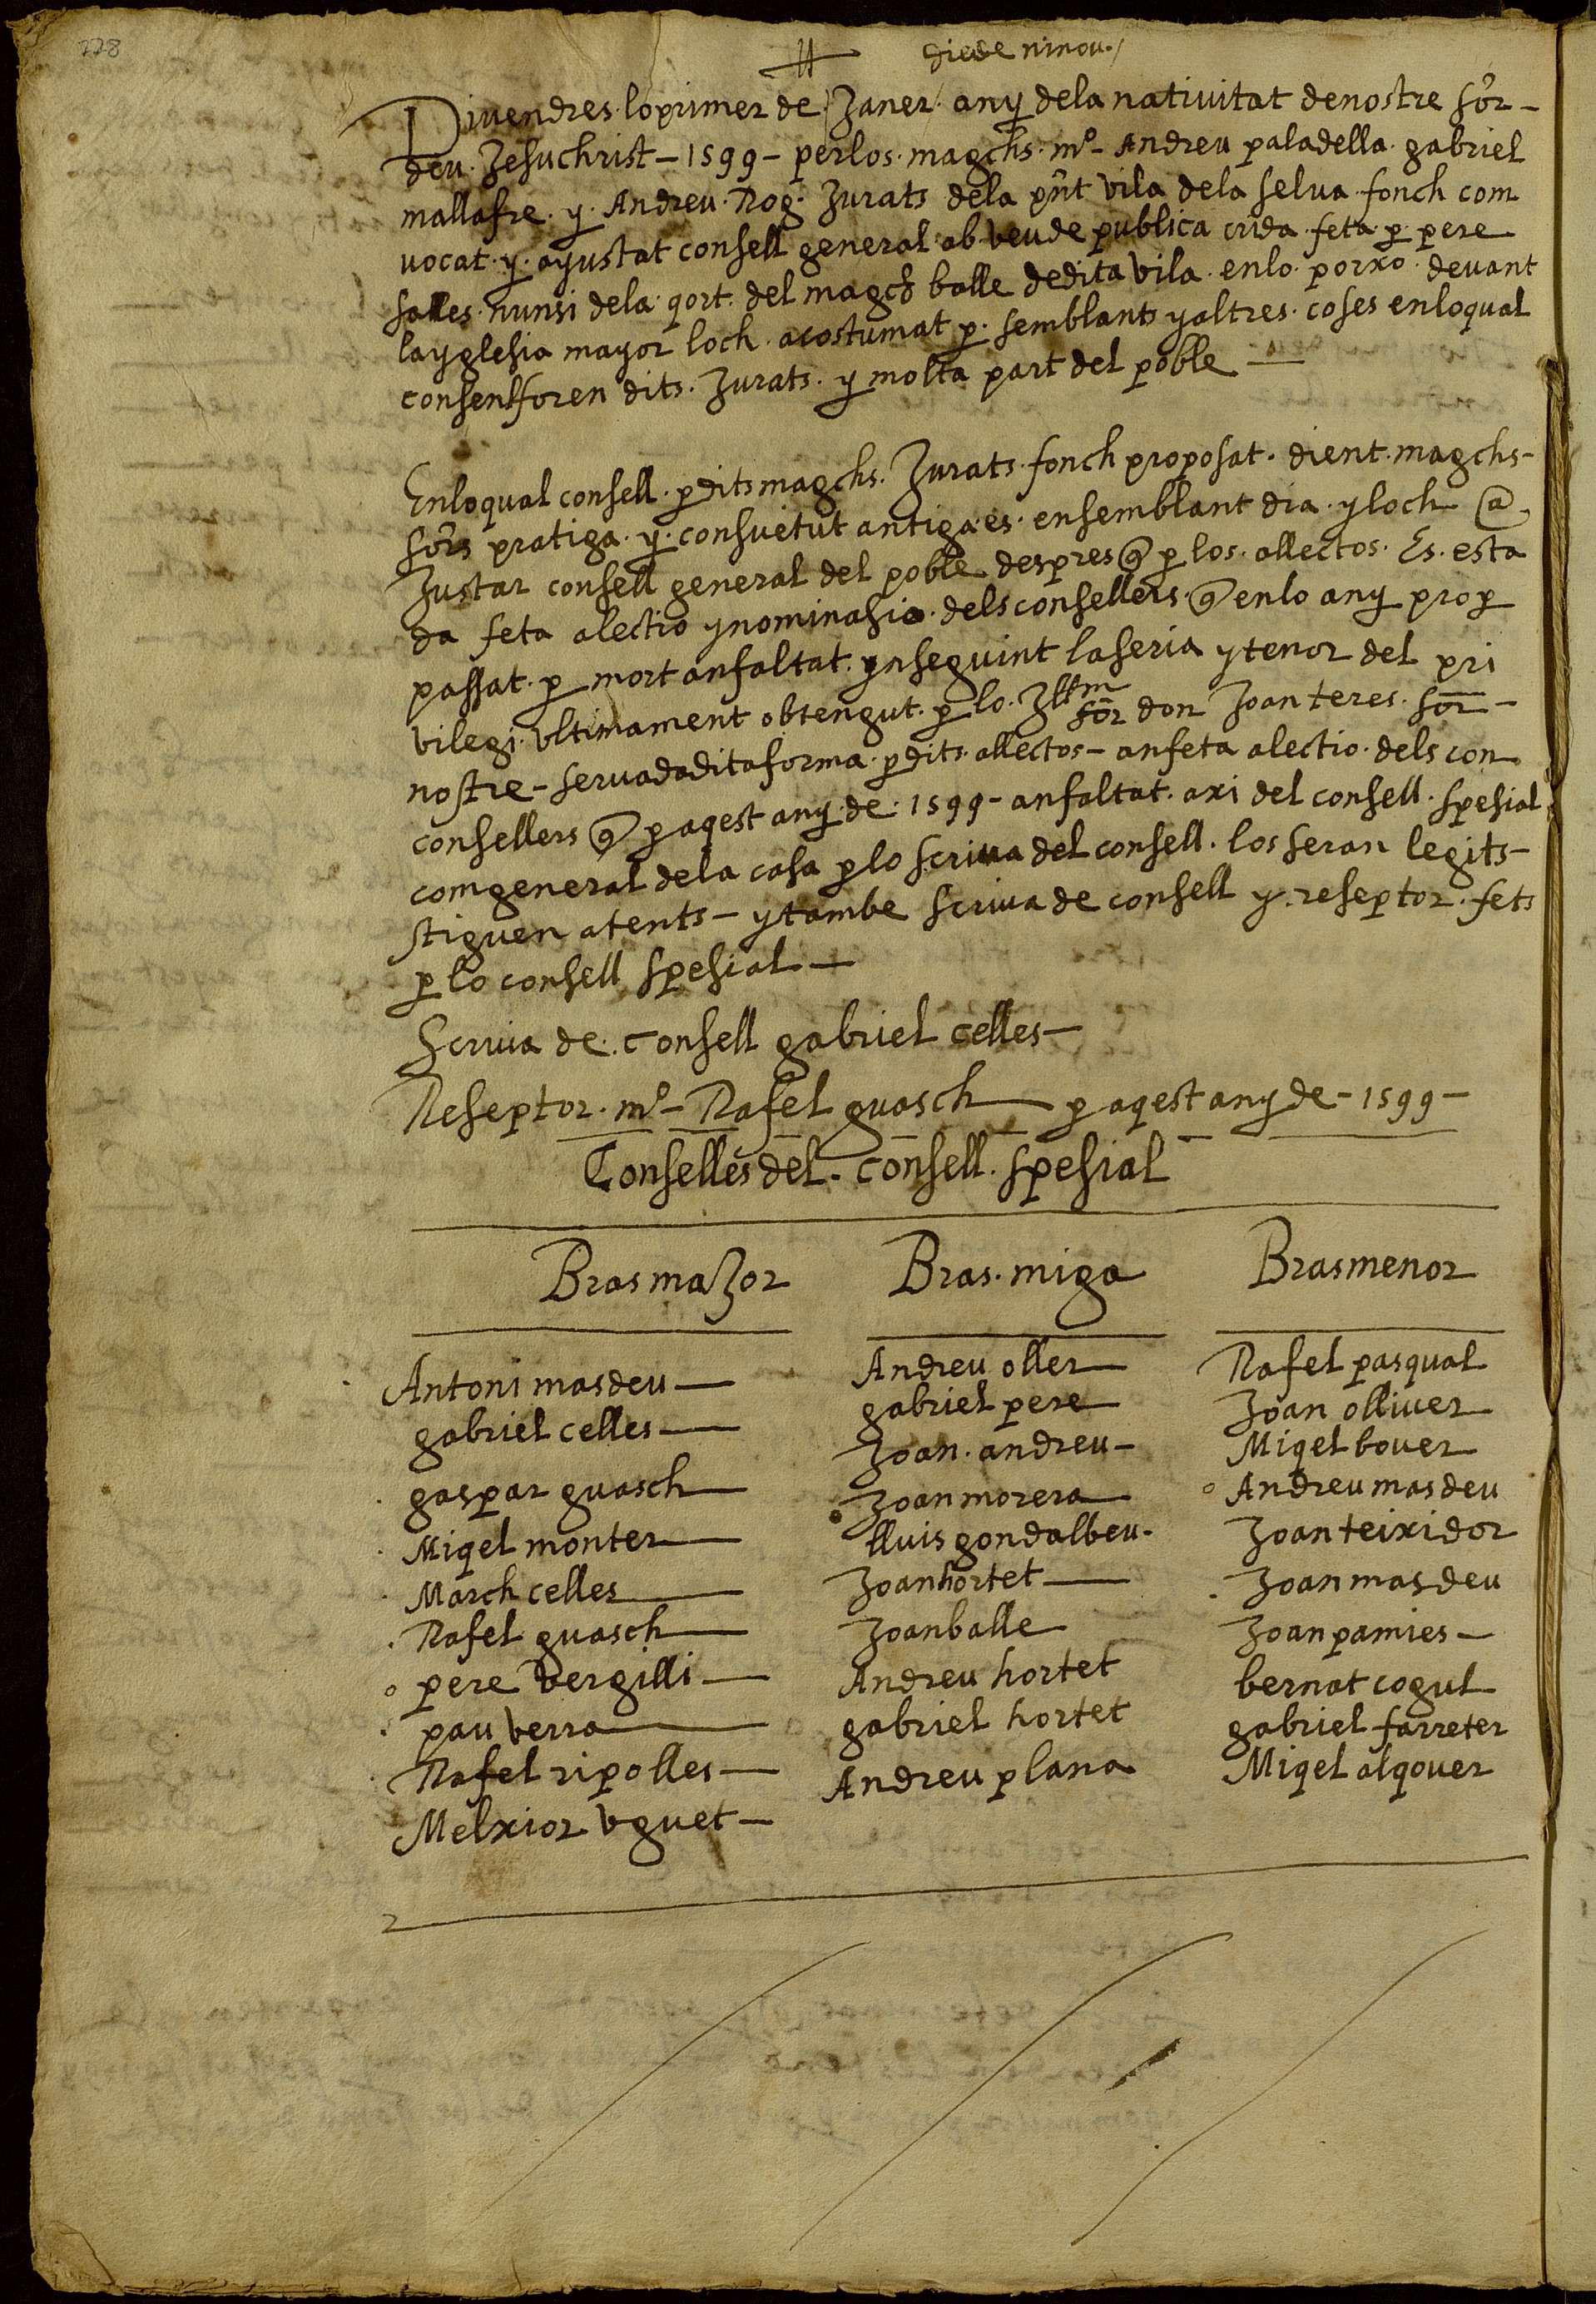 228
die de ninou
Divendres lo primer de Janer any dela nativitat de nostre sor̃ -
deu Jesuchrist - 1599 - per los magchs mº - Andreu paladella gabriel
mallafre y Andreu Rog Jurats dela pñt vila dela selva fonch com
vocat y ajustat consell general ab veu de publica crida feta p pere
salles nunsi dela qort del magch balle de dita vila en lo porxo devant
la yglesia mayor loch acostumat p semblants y altres coses en lo qual
consenll foren dits Jurats y molta part del poble —
En lo qual consell p dits magchs Jurats fonch proposat dient magchs -
sors̃ pratiga y consuetut antiga es en semblant dia y loch a
Justar consell general del poble despres q̃ p los allectos Es esta
da feta alectio y nominasio dels consellers q̃ en lo any prop
passat p mort an faltat ynseguint la seria y tenor del pri
vilegi ultimament obtengut p lo Illm sor̃ don Joan teres sor̃ -
nostre - servada dita forma p dits allectos - an feta alectio dels con
consellers q̃ p aqest any de 1599 - an faltat axi del consell spesial
com general dela casa p lo scriva del consell los seran legits -
stiguen atents - y tambe scriva de consell y reseptor fets
p lo consell spesial —
Scriva de consell gabriel celles —
Reseptor mº - Rafel guasch — p aqest any de - 1599 -
Conselles del consell spesial
Bras maJor Bras miga Bras menor
Antoni masdeu — Andreu oller — Rafel pasqual
gabriel celles — gabriel pere Joan olliver
gaspar guasch Joan andreu - Miqel bover
Miqel monter Joan morera Andreu masdeu
March celles lluis gondalbeu - Joan teixidor
Rafel guasch Joan hortet — Joan masdeu
pere vergilli — Joan balle Joan pamies -
pau verra Andreu hortet bernat cogul
Rafel ripolles — gabriel hortet gabriel farreter
Melxior uguet — Andreu plana Miqel alqover